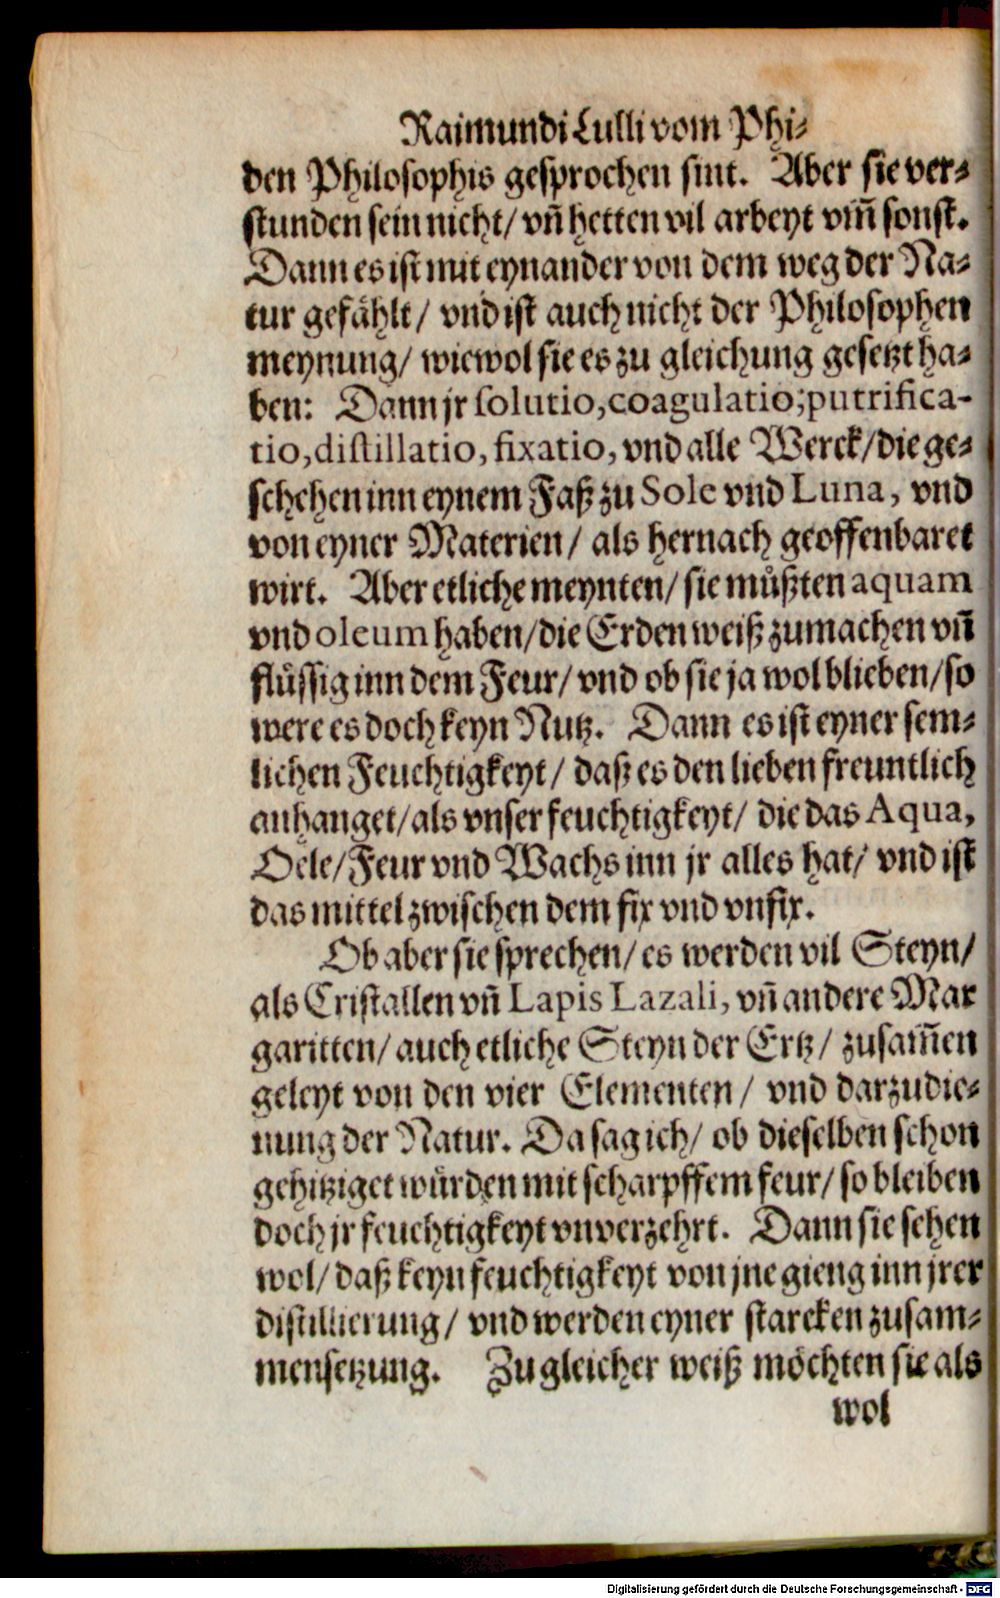 Raimundi Lulli vom Phi⸗
den Philosophis gesprochen sint. Aber sie ver⸗
stunden sein nicht/ vñ hetten vil arbeyt vm̃ sonst.
Dann es ist mit eynander von dem weg der Na⸗
tur gefählt/ vnd ist auch nicht der Philosophen
meynung/ wiewol sie es zu gleichung gesetzt ha⸗
ben: Dann jr solutio, coagulatio; putrifica-
tio, distillatio, fixatio, vnd alle Werck/ die ge⸗
schehen inn eynem Faß zu Sole vnd Luna, vnd
von eyner Materien/ als hernach geoffenbaret
wirt. Aber etliche meynten/ sie můßten aquam
vnd oleum haben/ die Erden weiß zumachen vñ
flüssig inn dem Feur/ vnd ob sie ja wol blieben/ so
were es doch keyn Nutz. Dann es ist eyner sem⸗
lichen Feuchtigkeyt/ daß es den lieben freuntlich
anhanget/ als vnser feuchtigkeyt/ die das Aqua,
Oele/ Feur vnd Wachs inn jr alles hat/ vnd ist
das mittel zwischen dem fix vnd vnfix.
Ob aber sie sprechen/ es werden vil Steyn/
als Cristallen vñ Lapis Lazali, vñ andere Mar
garitten/ auch etliche Steyn der Ertz/ zusam̃en
geleyt von den vier Elementen/ vnd darzu die⸗
nung der Natur. Da sag ich/ ob dieselben schon
gehitziget würden mit scharpffem feur/ so bleiben
doch jr feuchtigkeyt vnverzehrt. Dann sie sehen
wol/ daß keyn feuchtigkeyt von jne gieng inn jrer
distillierung/ vnd werden eyner starcken zusam⸗
mensetzung. Zu gleicher weiß möchten sie als
wol
Digitalisierung gefördert durch die Deutsche Forschungsgemeinschaft - DFG